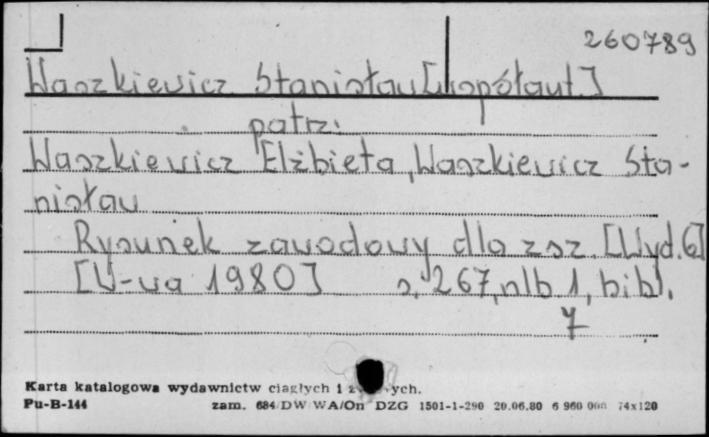 260789
Waszkiewicz Stanisław [współaut.]
patrz:
Waszkiewicz Elżbieta, Waszkiewicz Sta-
nisław
Rysunek zawodowy dla zsz. [Wyd. 6]
[W-wa 1980] s. 267, nlb 1, bibl.
7
Karta katalogowa wydawnictw ciągłych i ych.
Pu-B-144 zam. 684/DW/WA/On DZG 1501-1-290 20.06.80 6 960 000 74x120